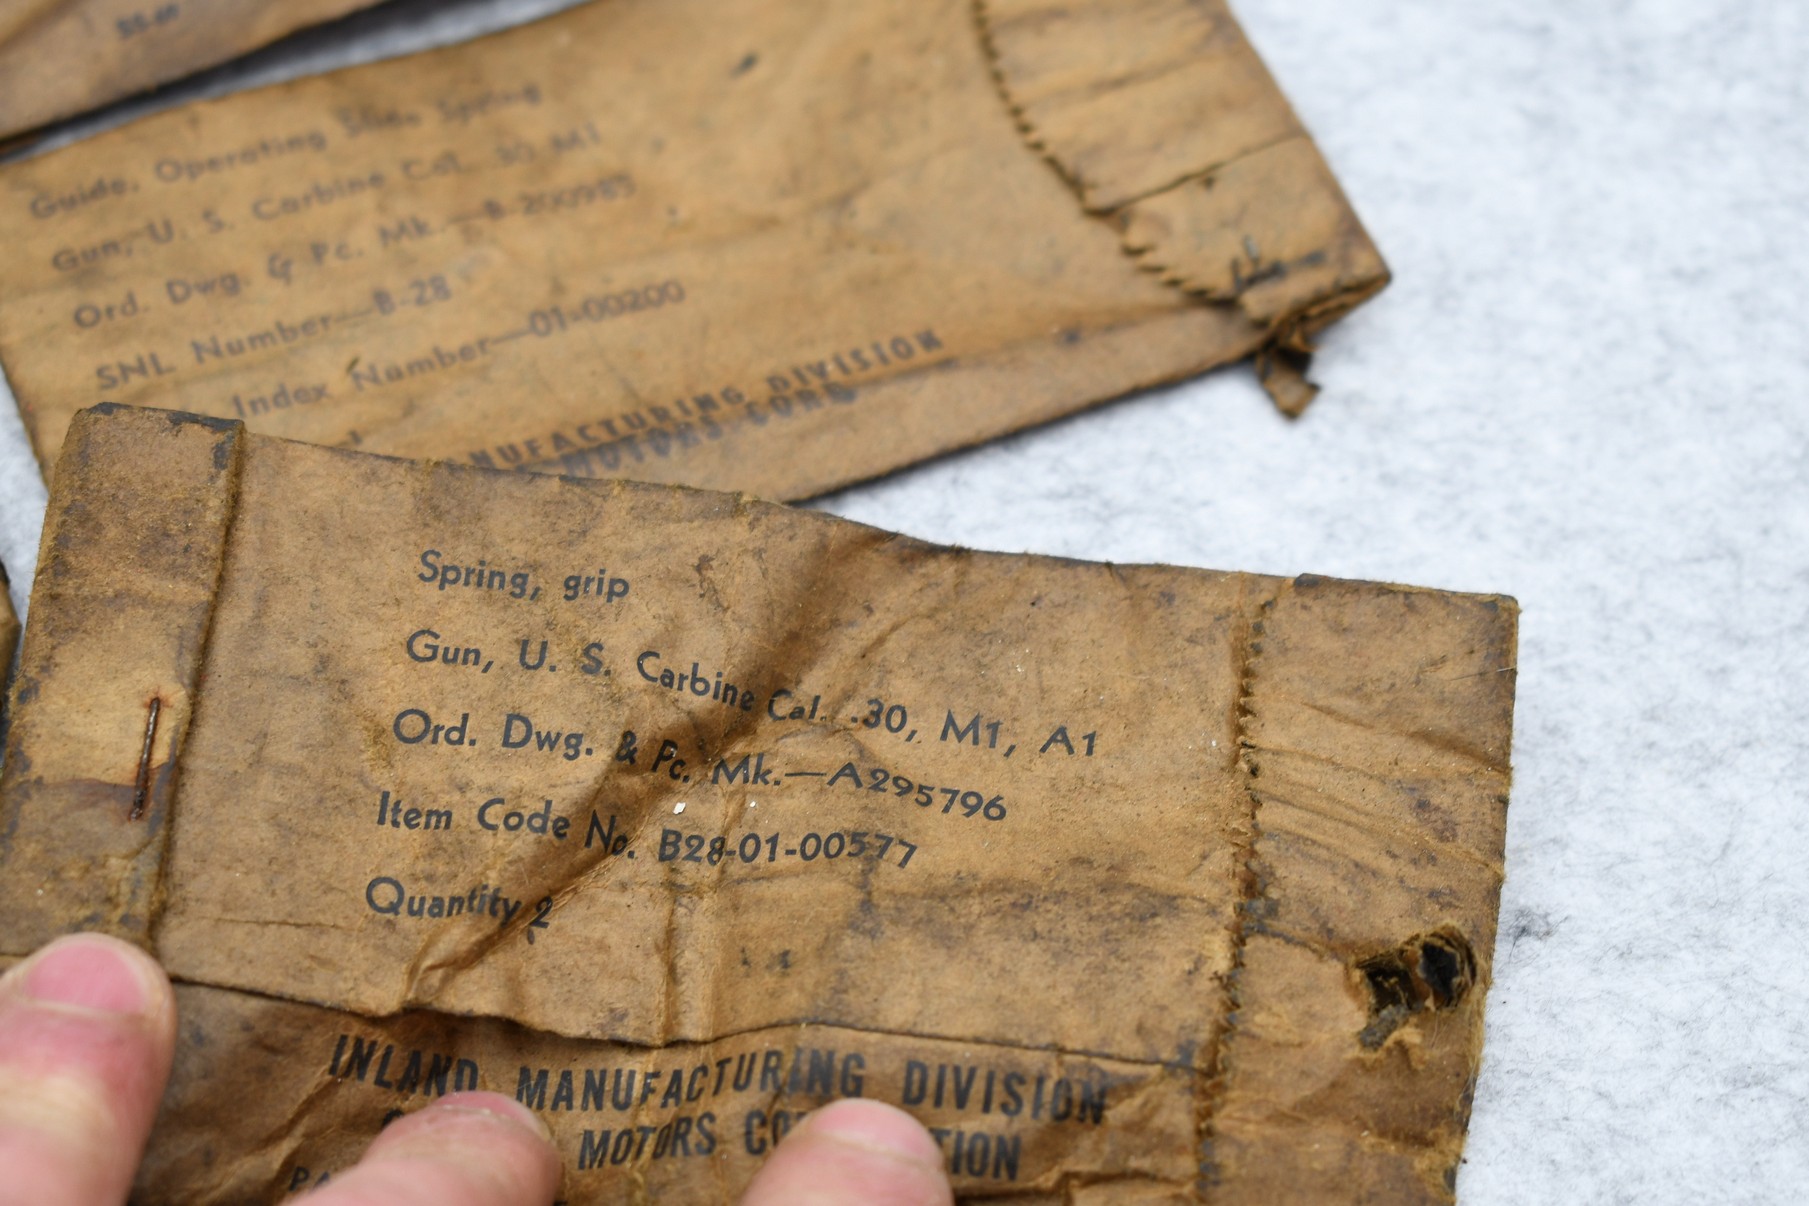 Guide, Operating Slide Spring
Gun, U. S. Carbine Cal. .30 M1
Ord. Dwg. & Pc. Mk.—B-200985
SNL Number—B-28
Index Number—01-00200
NUFACTURING DIVISION
MOTORS CORP
Spring, grip
Gun, U. S. Carbine Cal. .30, M1, A1
Ord. Dwg. & Pc. Mk.—A295796
Item Code No. B28-01-00577
Quantity 2
INLAND MANUFACTURING DIVISION
MOTORS CO TION